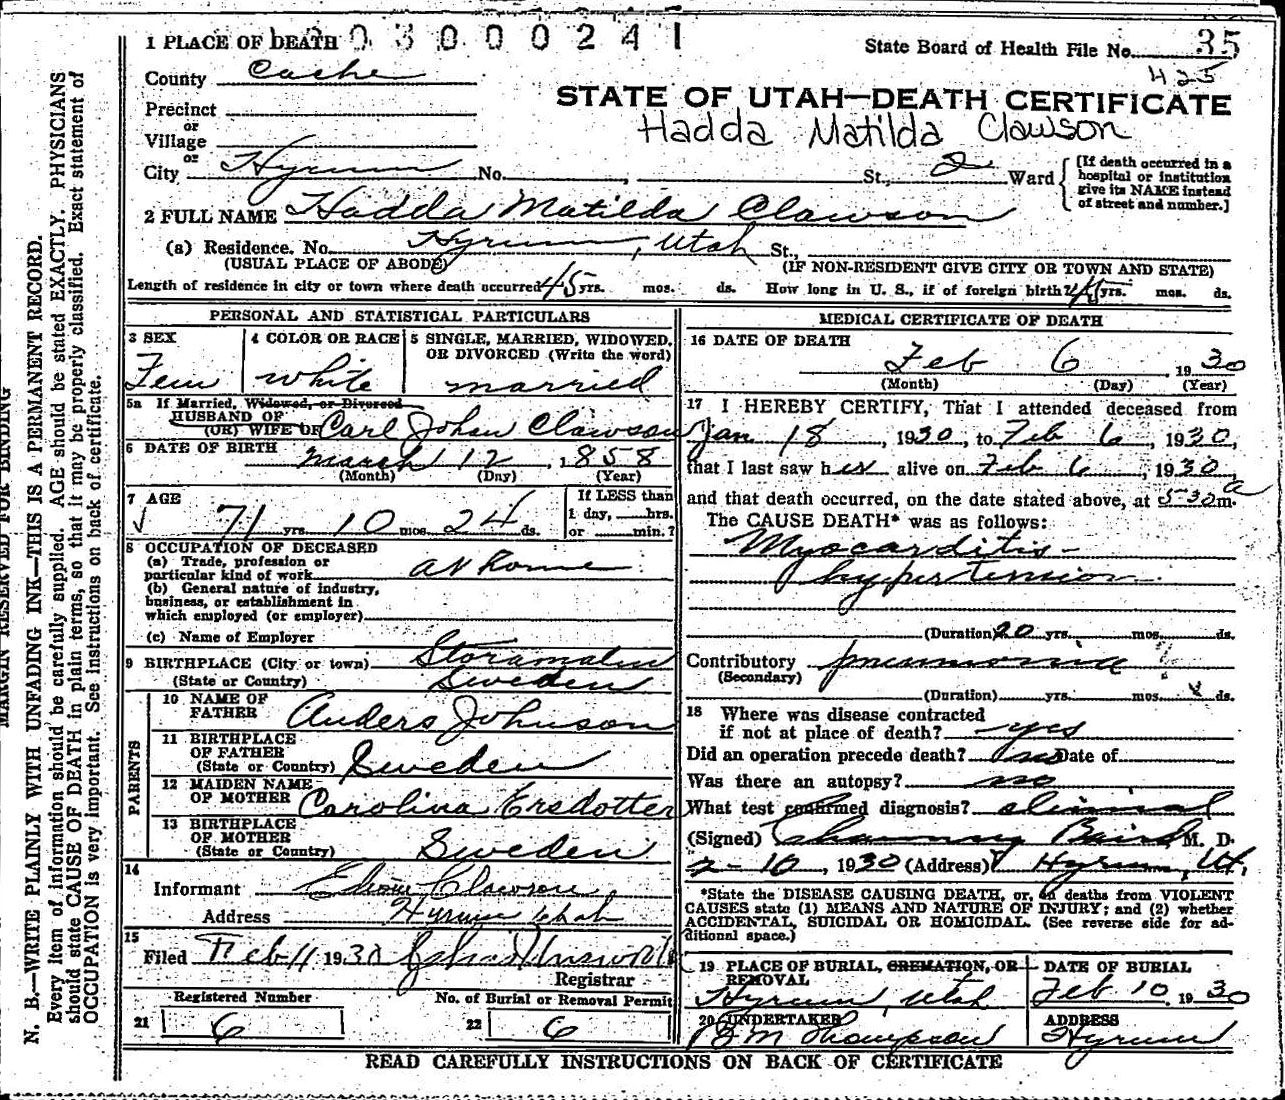 1 PLACE OF DEATH 030000241
State Board of Health File No. 35
425
County Cache
STATE OF UTAH—DEATH CERTIFICATE
Hadda Matilda Clawson
Precinct
or
Village
or
City Hyrum No. , St., 2 Ward
{[If death occurred in a
hospital or institution
give its NAME instead
of street and number.]
2 FULL NAME Hadda Matilda Clawson
(a) Residence. No. Hyrum, Utah St.,
(USUAL PLACE OF ABODE) (IF NON-RESIDENT GIVE CITY OR TOWN AND STATE)
Length of residence in city or town where death occurred 45 yrs. mos. ds. How long in U. S., if of foreign birth? 45 yrs. mos. ds.
PERSONAL AND STATISTICAL PARTICULARS
3 SEX
Fem
4 COLOR OR RACE
white
5 SINGLE, MARRIED, WIDOWED,
OR DIVORCED (Write the word)
married
5a If Married, Widowed, or Divorced
HUSBAND OF
(OR) WIFE OF Carl Johan Clawson
6 DATE OF BIRTH
March 12, 1858
(Month) (Day) (Year)
7 AGE
71 yrs. 10 mos. 24 ds.
If LESS than
1 day, hrs.
or min.?
8 OCCUPATION OF DECEASED
(a) Trade, profession or
particular kind of work at home
(b) General nature of industry,
business, or establishment in
which employed (or employer)
(c) Name of Employer
9 BIRTHPLACE (City or town)
(State or Country) Sweden
PARENTS
10 NAME OF
FATHER Anders Johnson
11 BIRTHPLACE
OF FATHER
(State or Country) Sweden
12 MAIDEN NAME
OF MOTHER Carolina Ersdotter
13 BIRTHPLACE
OF MOTHER
(State or Country) Sweden
14
Informant Clawson
Address Hyrum Utah
15
Filed Feb 11 1930
Registrar
Registered Number
21 6
No. of Burial or Removal Permit
22 6
MEDICAL CERTIFICATE OF DEATH
16 DATE OF DEATH
Feb 6, 1930
(Month) (Day) (Year)
17 I HEREBY CERTIFY, That I attended deceased from
Jan. 18, 1930, to Feb 6, 1930,
that I last saw her alive on Feb 6, 1930
and that death occurred, on the date stated above, at 5-30 a m.
The CAUSE DEATH* was as follows:
Myocarditis -
hypertension
(Duration) 20 yrs. mos. ds.
Contributory pneumonia
(Secondary)
(Duration) yrs. mos. ds.
18 Where was disease contracted
if not at place of death? yes
Did an operation precede death? no Date of
Was there an autopsy? no
What test confirmed diagnosis? clinical
(Signed) Baird M. D.
2-10, 1930 (Address) Hyrum, Ut.
*State the DISEASE CAUSING DEATH, or, in deaths from VIOLENT
CAUSES state (1) MEANS AND NATURE OF INJURY; and (2) whether
ACCIDENTAL, SUICIDAL OR HOMICIDAL. (See reverse side for ad-
ditional space.)
19 PLACE OF BURIAL, CREMATION, OR
REMOVAL
Hyrum, Utah
DATE OF BURIAL
Feb 10, 1930
20 UNDERTAKER
B M Thompson
ADDRESS
Hyrum
READ CAREFULLY INSTRUCTIONS ON BACK OF CERTIFICATE
MARGIN RESERVED FOR BINDING
N. B.—WRITE PLAINLY WITH UNFADING INK—THIS IS A PERMANENT RECORD.
Every item of information should be carefully supplied. AGE should be stated EXACTLY. PHYSICIANS
should state CAUSE OF DEATH in plain terms, so that it may be properly classified. Exact statement of
OCCUPATION is very important. See instructions on back of certificate.